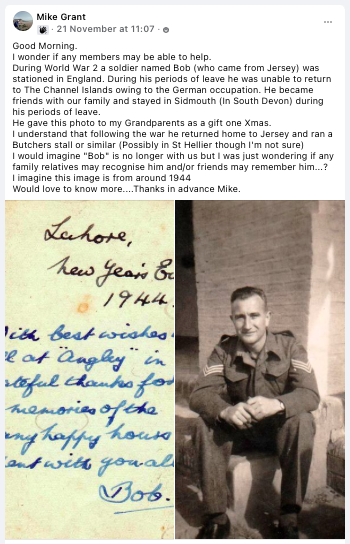 Mike Grant
21 November at 11:07
Good Morning.
I wonder if any members may be able to help.
During World War 2 a soldier named Bob (who came from Jersey) was
stationed in England. During his periods of leave he was unable to return
to The Channel Islands owing to the German occupation. He became
friends with our family and stayed in Sidmouth (In South Devon) during
his periods of leave.
He gave this photo to my Grandparents as a gift one Xmas.
I understand that following the war he returned home to Jersey and ran a
Butchers stall or similar (Possibly in St Hellier though I'm not sure)
I would imagine "Bob" is no longer with us but I was just wondering if any
family relatives may recognise him and/or friends may remember him...?
I imagine this image is from around 1944
Would love to know more....Thanks in advance Mike.
Lahore,
New Year's E
1944.
ith best wishes
l at "Angley" in
ateful thanks for
memories of the
ny happy hours
ent with you all
Bob.